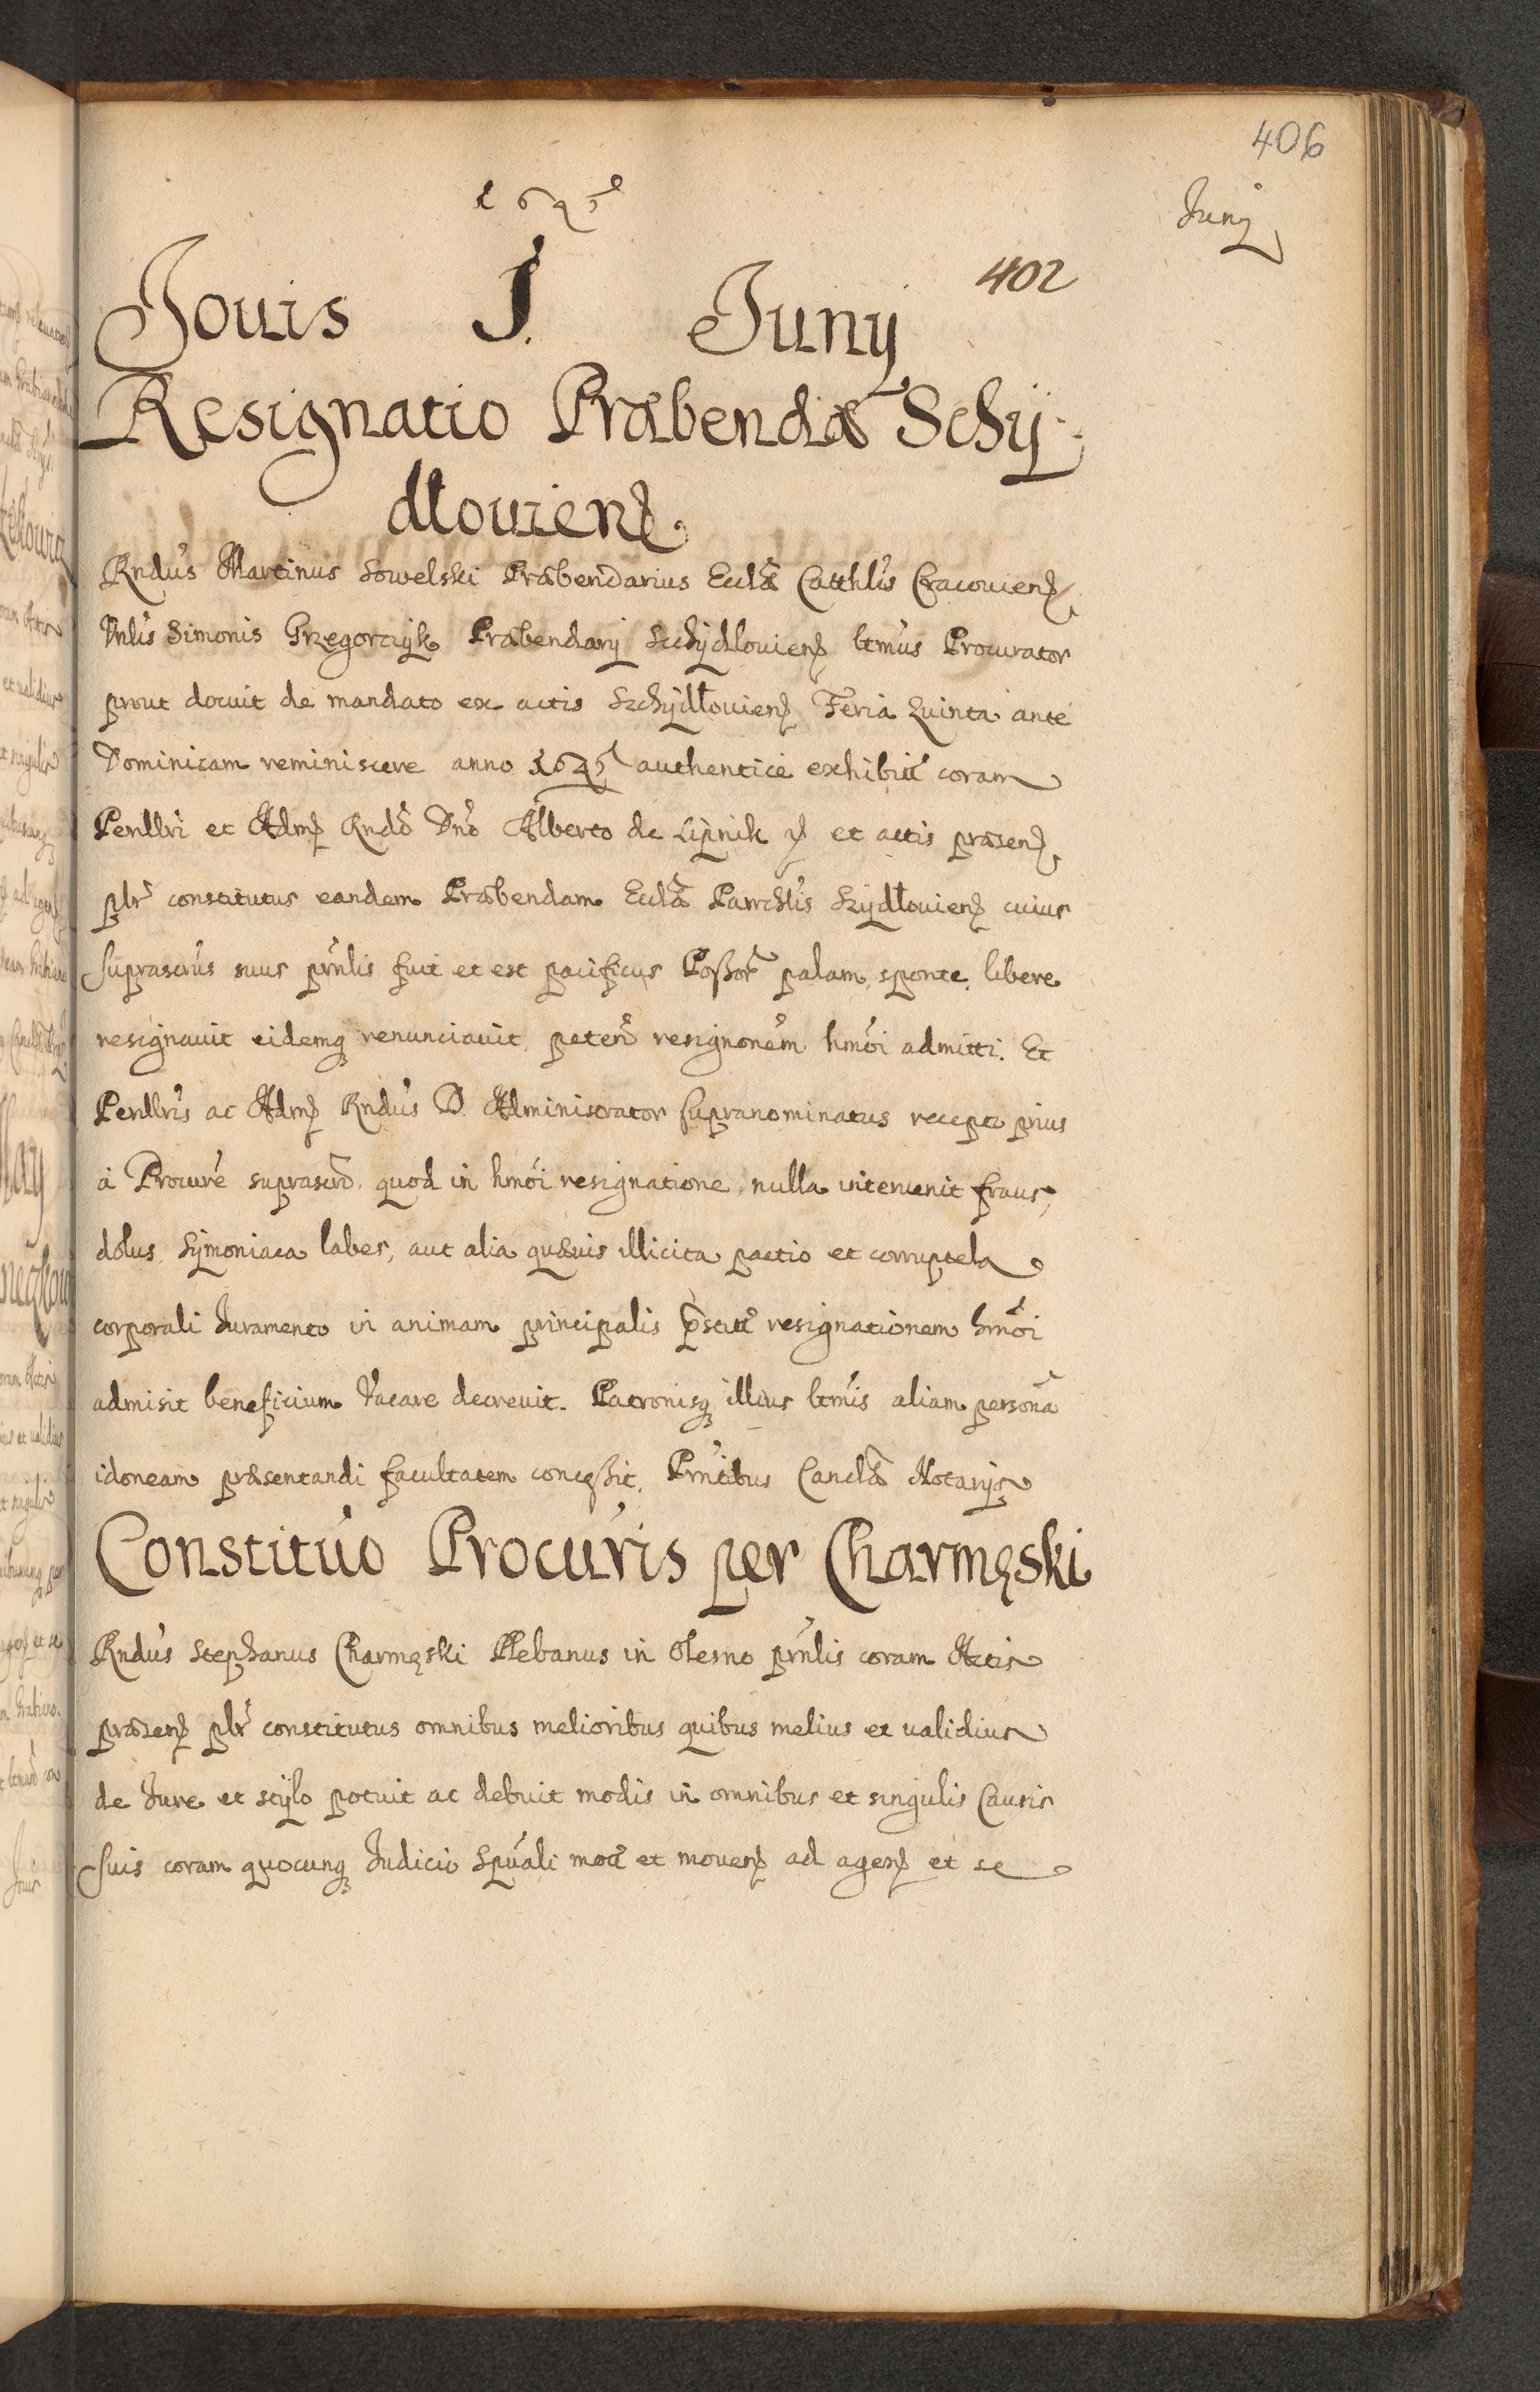 406
Juny
402
Jouis 1. Juny
Resignatio Præbendæ Schÿ-
dłouiens.
Rndús Martinus Sowelski Præbendarius Ecclæ Catthlis Cracouiens
Vnlis Simonis Grzegorczÿk Præbendarÿ Schÿdlouiens ltmus Procurator
prout docuit de mandato ex actis Szchÿdłouiens Feria Quinta ante
Dominicam reminiscere anno authentice exhibitt coram
Perillri et Adm Rndo Dno Alberto de Lipnik et actis præsens
plr constitutus eandem Præbendam Ecclæ Parochlis Szÿdłouiens cuius
suprascrus suus prnlis fuit et est pacificus Possor palam, sponte, libere
resignauit eidemq renunciauit, petens resignonem hmoi admitti. Et
Perillris ac Adm Rndus D. Administrator supranominatus recepto prius
à Procure suprascro, quod in hmoi resignatione, nulla interuenit fraus,
dolus, Sÿmoniaca labes, aut alia quæuis illicita pactio et corruptela
corporali Iuramento in animam principalis pstitt resignationem hmoi
admisit beneficium Vacare decreuit. Patronisq illius ltmis aliam personã
idoneam præsentandi facultatem concessit. Prntibus Canclæ Notarÿs
Constitúo Procúris per Charmęski
Rndús Stephanus Charmęski Plebanus in Olesno prnlis coram Actis
præsens plr constitutus omnibus melioribus quibus melius et ualidius
de Iure et stÿlo potuit ac debuit modis in omnibus et singulis Causis
suis coram quocunq Iudicio Spuali mot et mouens ad agens et se